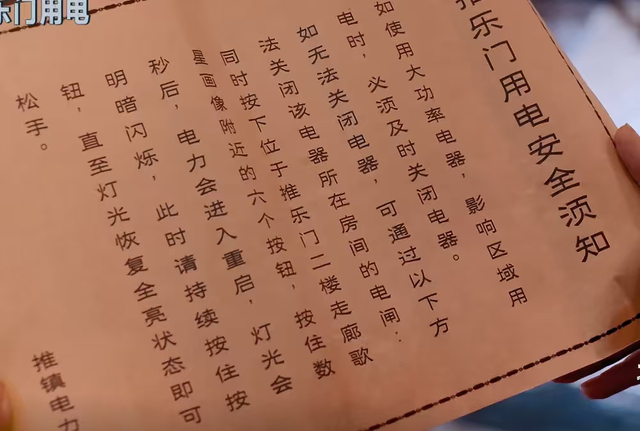 乐门用电
推乐门用电安全须知
如使用大功率电器，影响区域用
电时，必须及时关闭电器。
如无法关闭电器，可通过以下方
法关闭该电器所在房间的电闸：
同时按下位于推乐门二楼走廊歌
星画像附近的六个按钮，按住数
秒后，电力会进入重启，灯光会
明暗闪烁，此时请持续按住按
钮，直至灯光恢复全亮状态即可
松手。
推镇电力